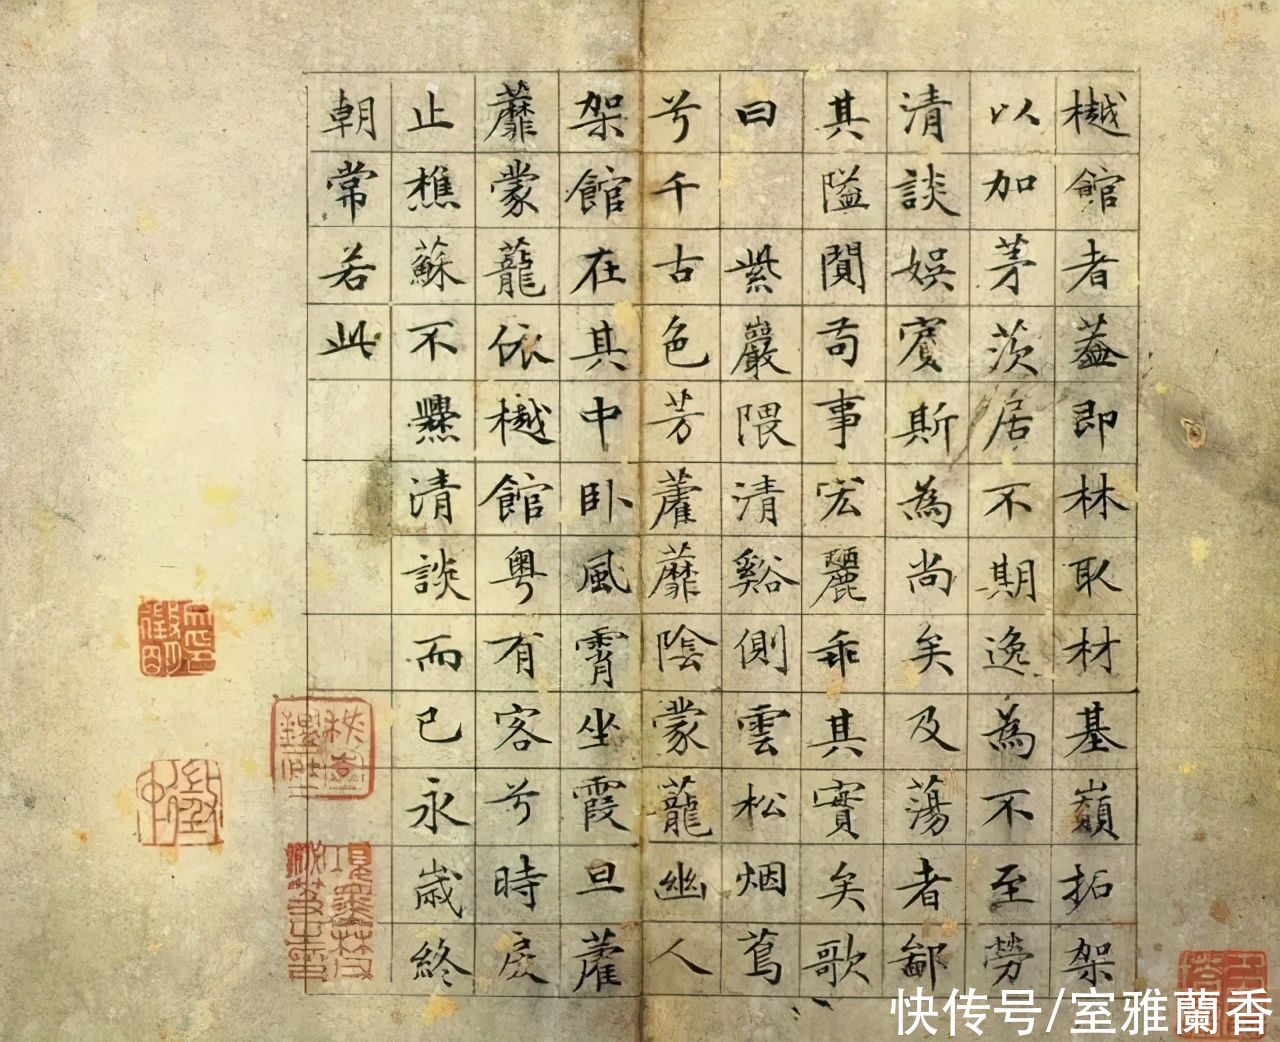 樾館者蓋即林取材基巔拓架
以加茅茨居不期逸為不至勞
清談娛賓斯為尚矣及蕩者鄙
其隘閴苟事宏麗乖其實矣歌
曰 紫巖隈清谿側雲松烟蔦
兮千古色芳藿蘼陰蒙蘢幽人
架館在其中卧風霄坐霞旦藿
蘼蒙蘢依樾館粤有客兮時戾
止樵蘇不爨清談而已永歲終
朝常若此
快传号/室雅蘭香